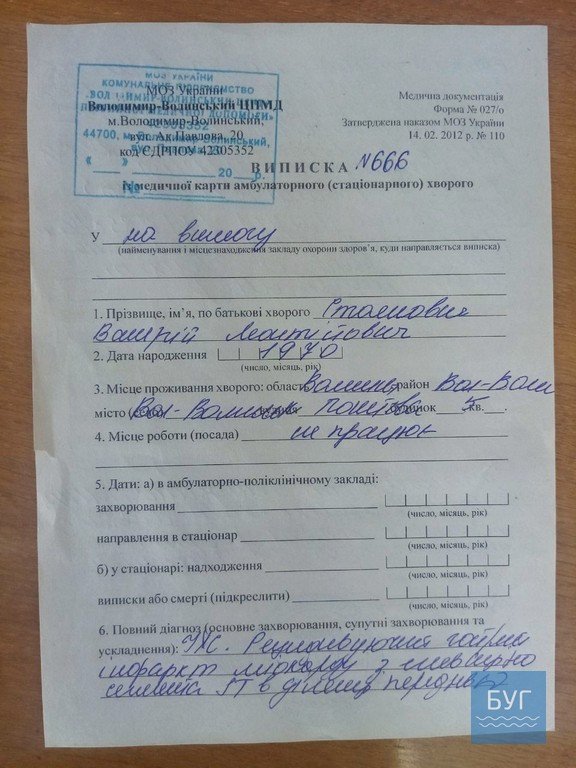 МОЗ УКРАЇНИ
КОМУНАЛЬНЕ
44700, м.
20 р.
№
МОЗ України
Володимир-Волинський ЦПМД
м.Володимир-Волинський,
вул. Ак.Павлова, 20
код ЄДРПОУ 42305352
Медична документація
Форма № 027/о
Затверджена наказом МОЗ України
14. 02. 2012 р. № 110
ВИПИСКА №666
із медичної карти амбулаторного (стаціонарного) хворого
У на вимогу
(найменування і місцезнаходження закладу охорони здоров'я, куди направляється виписка)
1. Прізвище, ім'я, по батькові хворого
Валерій
2. Дата народження 1970
(число, місяць, рік)
3. Місце проживання хворого: область район Вол-Вол
місто Вол-Волинськ будинок кв.
4. Місце роботи (посада) не працює
5. Дати: а) в амбулаторно-поліклінічному закладі:
захворювання
(число, місяць, рік)
направлення в стаціонар
(число, місяць, рік)
б) у стаціонарі: надходження
(число, місяць, рік)
виписки або смерті (підкреслити)
(число, місяць, рік)
6. Повний діагноз (основне захворювання, супутні захворювання та
ускладнення): ІХС. Рецидивуючий гострий
інфаркт міокарду з елевацією
сегмента ST в ділянці передньої
БУГ